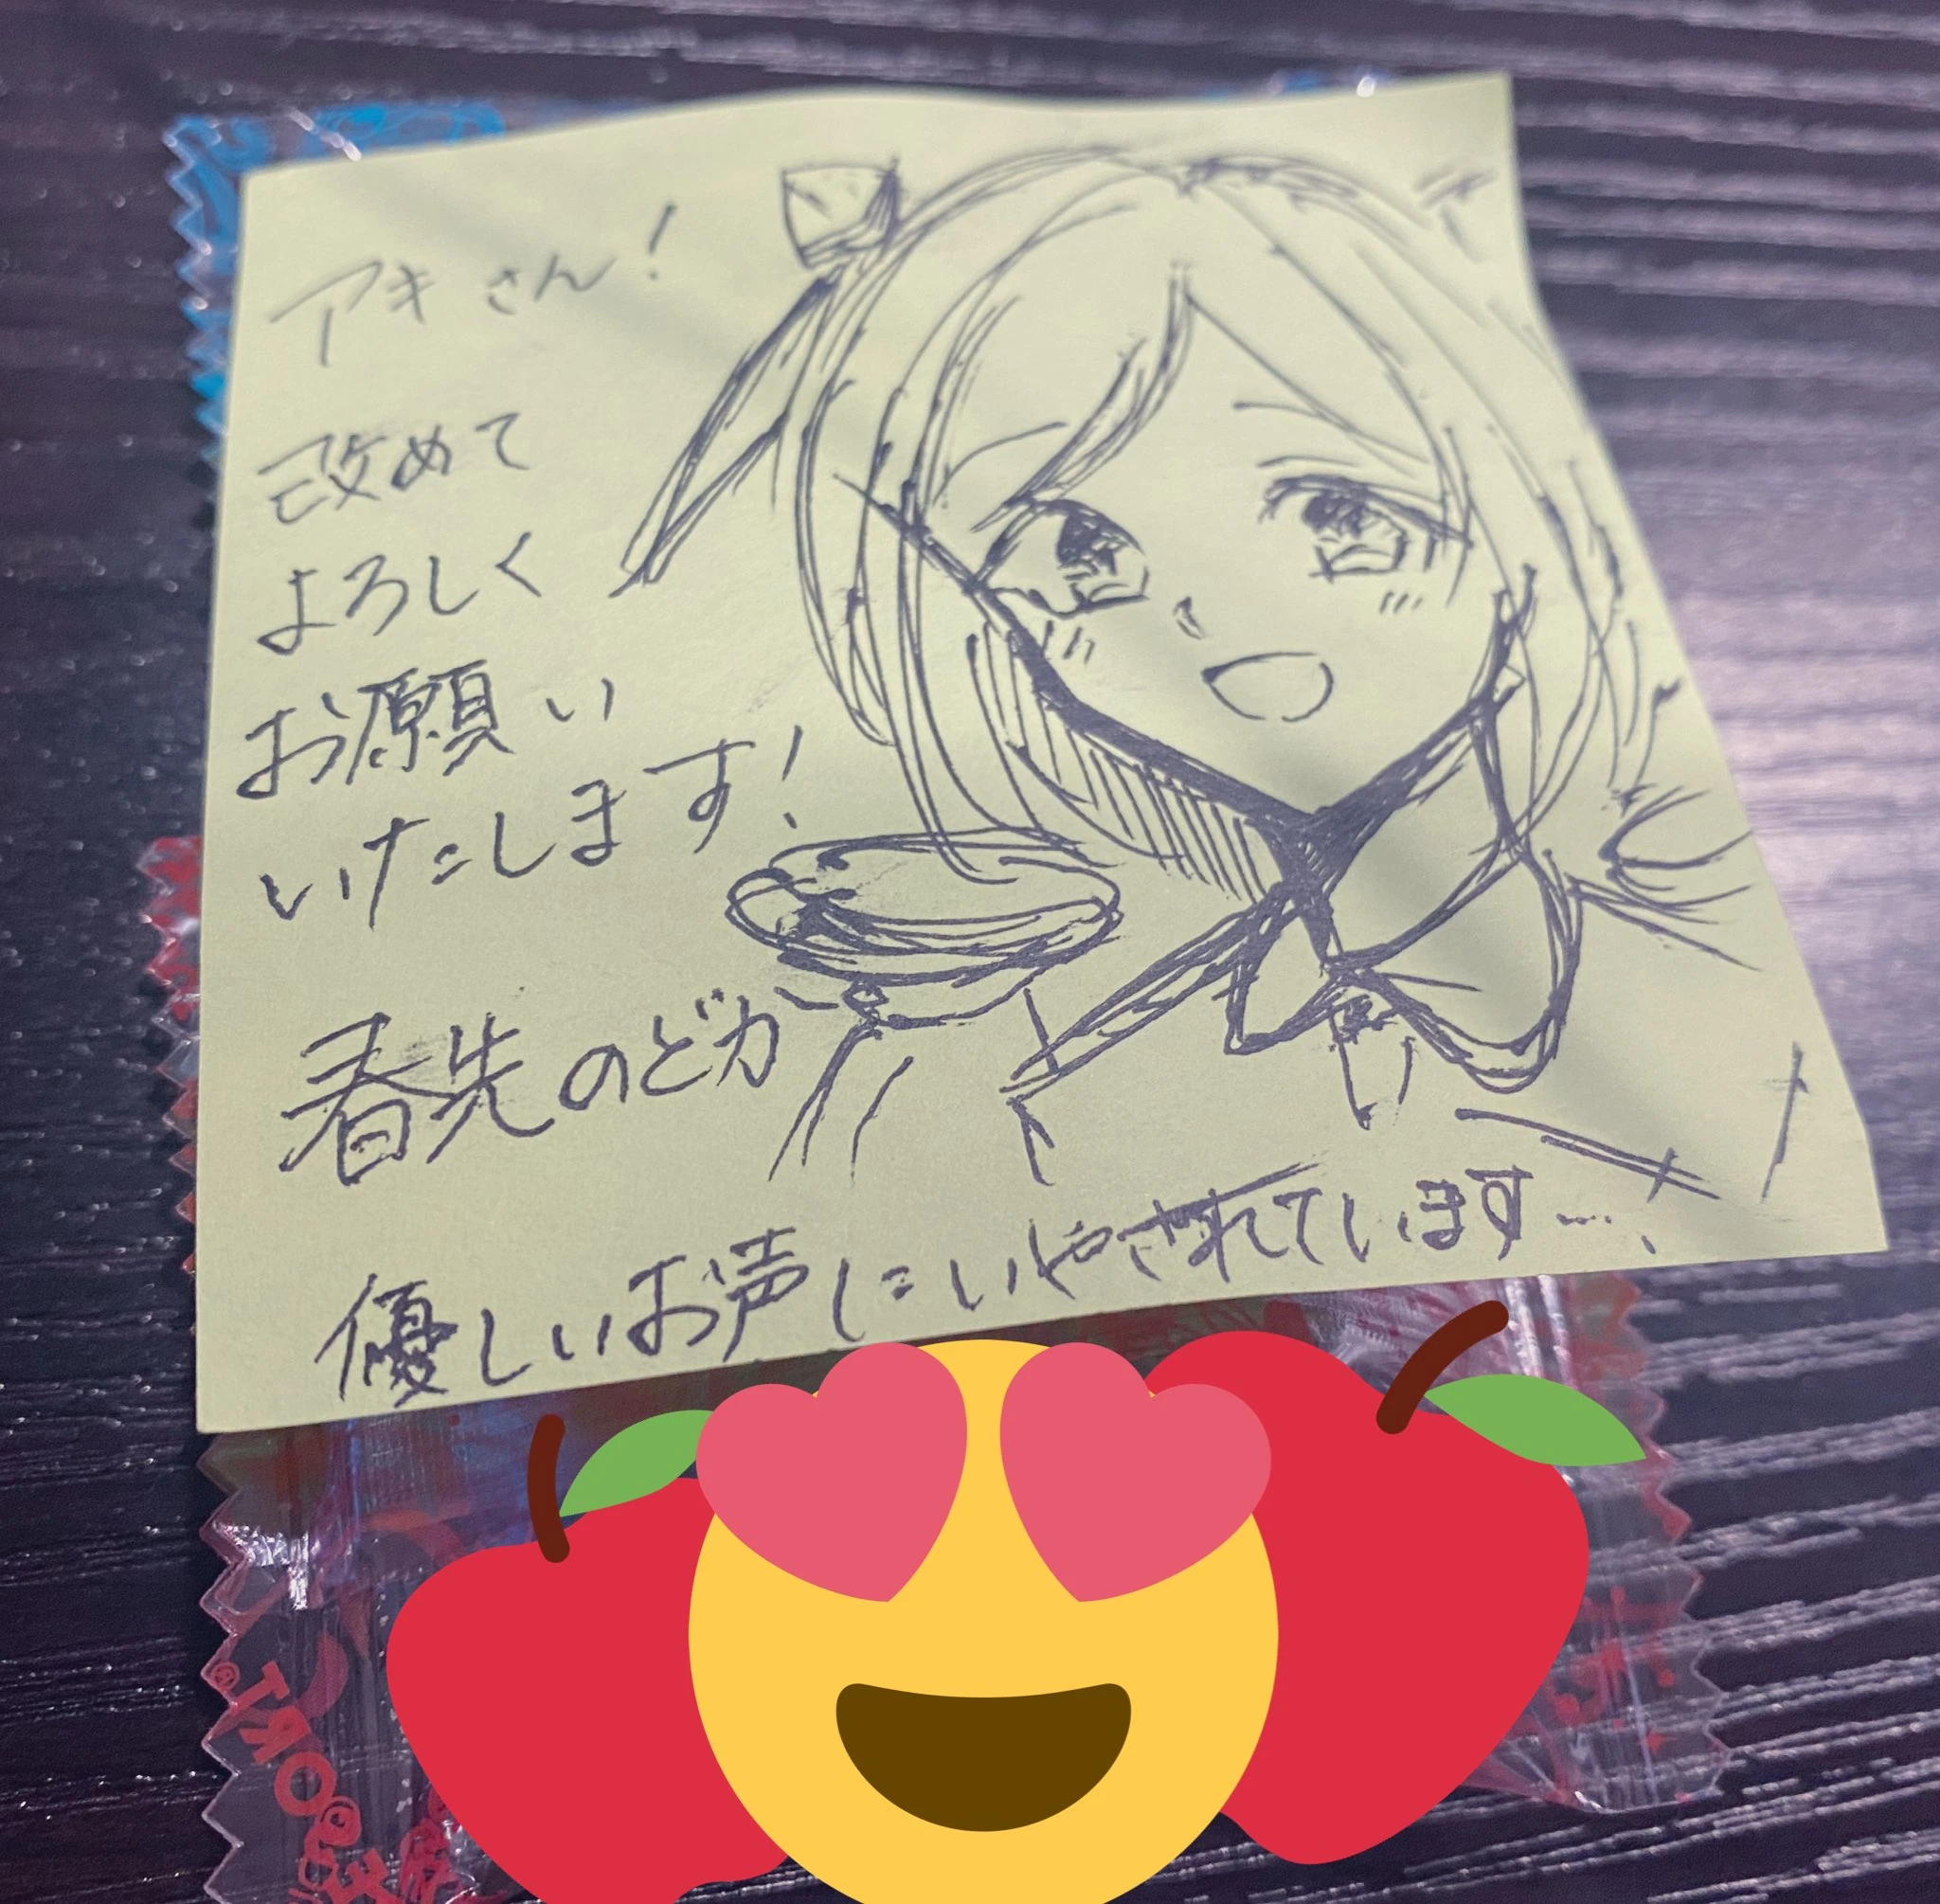 アキさん!
改めて
よろしく
お願い
いたします!
春先のどか
優しいお声にいやされています…!